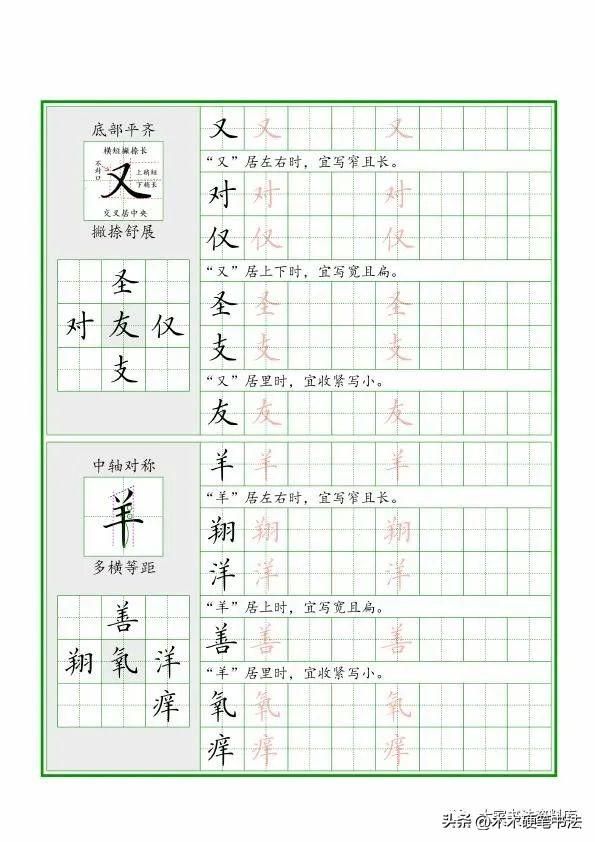 底部平齐
横短撇捺长
不封口
上稍短
下稍长
又
交叉居中央
撇捺舒展
圣
对友仅
支
又 又 又
“又”居左右时，宜写窄且长。
对 对 对
仅 仅 仅
“又”居上下时，宜写宽且扁。
圣 圣 圣
支 支 支
“又”居里时，宜收紧写小。
友 友 友
中轴对称
羊
多横等距
善
翔氧洋
痒
羊 羊 羊
“羊”居左右时，宜写窄且长。
翔 翔 翔
洋 洋 洋
“羊”居上时，宜写宽且扁。
善 善 善
“羊”居里时，宜收紧写小。
氧 氧 氧
痒 痒 痒
头条 @不不硬笔书法